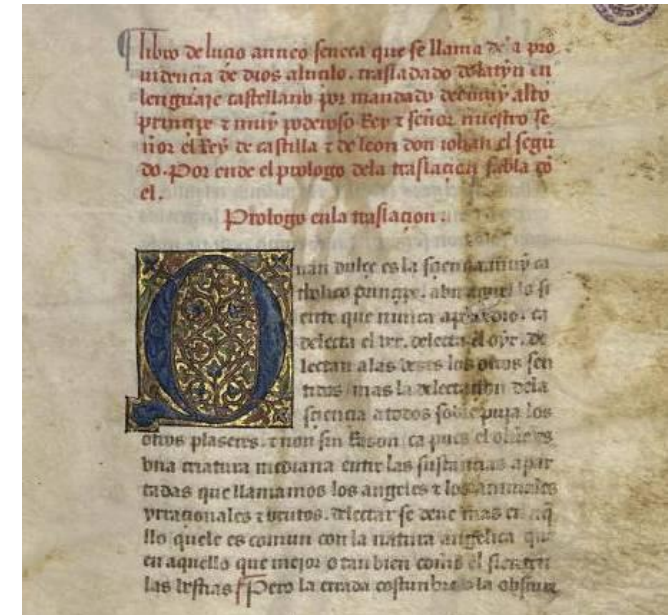 libro de lucio anneo seneca que se llama de la pro
uidencia de dios a lucilo. trasladado de latyn en
lenguaje castellano por mandado del muy alto
principe τ muy poderoso Rey τ señor nuestro se
ñor el Rey de castilla τ de leon don iohan el segũ
do. Por ende el prologo dela traslaçion fabla cõ
el.
Prologo enla traslaçion.
Quan dulçe es la sçiençia muy ca
tholico prinçipe. abn aquel lo si
ente que nunca aprendio. ca
delecta el ver. delecta el oyr. de
lectan alas veses los otros sen
tidos mas la delectaçion dela
sçiençia a todos sobre puja los
otros plaseres. τ non sin Rason ca pues el omẽ es
vna criatura mediana entre las sustançias apar
tadas que llamamos los angeles τ los animales
yrraçionales τ brutos. delectar se deue mas en aq̃
llo quele es comun con la natura angelica que
en aquello que mejor o tan bien como el sienten
las bestias Pero la errada costunbre o la obscur